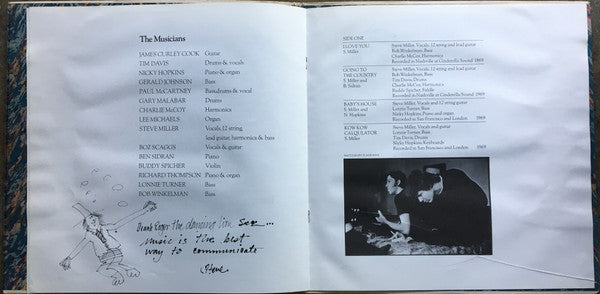 The Musicians
JAMES CURLEY COOK Guitar
TIM DAVIS Drums & vocals
NICKY HOPKINS Piano & organ
GERALD JOHNSON Bass
PAUL McCARTNEY Bass, drums & vocal
GARY MALABAR Drums
CHARLIE McCOY Harmonica
LEE MICHAELS Organ
STEVE MILLER Vocals, 12 string,
lead guitar, harmonica & bass
BOZ SCAGGS Vocals & guitar
BEN SIDRAN Piano
BUDDY SPICHER Violin
RICHARD THOMPSON Piano & organ
LONNIE TURNER Bass
BOB WINKELMAN Bass
the dancing lion
music is the best
way to communicate
Steve
SIDE ONE
I LOVE YOU Steve Miller, Vocals, 12 string and lead guitar
S. Miller Bob Winkelman, Bass
Charlie McCoy, Harmonica
Recorded in Nashville at Cinderella Sound 1969
GOING TO Steve Miller, Vocals, 12 string and lead guitar
THE COUNTRY Bob Winkelman, Bass
S. Miller and Tim Davis, Drums
B. Sidran Charlie McCoy, Harmonica
Buddy Spicher, Fiddle
Recorded in Nashville at Cinderella Sound 1969
BABY'S HOUSE Steve Miller, Vocals and 12 string guitar
S. Miller and Lonnie Turner, Bass
N. Hopkins Nicky Hopkins, Piano and organ
Recorded in San Francisco and London. 1969
KOW KOW Steve Miller, Vocals and guitar
CALQULATOR Lonnie Turner, Bass
S. Miller Tim Davis, Drums
Nicky Hopkins Keyboards
Recorded in San Francisco and London. 1969